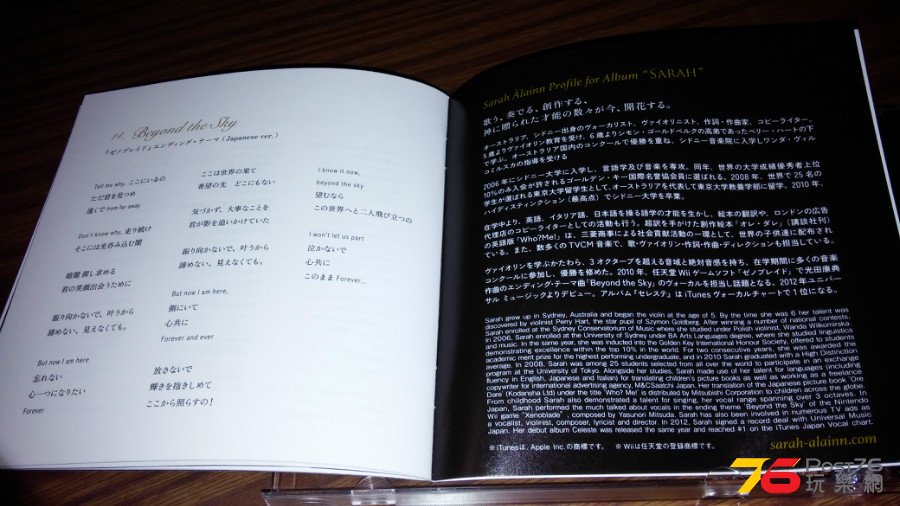 14. Beyond the Sky
『ゼノブレイド』エンディング・テーマ (Japanese ver.)
Tell me why, ここにいるの
ただ君を見つめ
遠くで from far away.
Don't know why, 走り続け
そこには光呑み込む闇
暗闇 探し求める
君の笑顔出会うために
振り向かないで、叶うから
諦めない、見えなくても。
But now I am here
忘れない
心一つになりたい
Forever
ここは世界の果て
希望の光 どこにもない
気づかず、大事なことを
君が影を追いかけていた
振り向かないで、叶うから
諦めない、見えなくても。
But now I am here,
側にいて
心共に
Forever and ever
放さないで
輝きを抱きしめて
ここから照らすの！
I know it now,
beyond the sky
望むなら
この世界へと二人飛び立つの
I won't let us part
泣かないで
心共に
このまま Forever...
Sarah Àlainn Profile for Album "SARAH"
歌う、奏でる、創作する、
神に贈られた才能の数々が今、開花する。
オーストラリア、シドニー出身のヴォーカリスト、ヴァイオリニスト、作詞・作曲家、コピーライター。
5歳よりヴァイオリン教育を受け、6歳よりシモン・ゴールドベルクの高弟であったペリー・ハートの下
で学ぶ。オーストラリア国内のコンクールで優勝を重ね、シドニー音楽院に入学しワンダ・ヴィル
コミルスカの指導を受ける
2006年にシドニー大学に入学し、言語学及び音楽を専攻。同年、世界の大学成績優秀者上位
10%のみ入会が許されるゴールデン・キー国際名誉協会会員に選ばれる。2008年、世界で25名の
学生が選ばれる東京大学留学生として、オーストラリアを代表して東京大学教養学部に留学。2010年、
ハイディスティンクション（最高点）でシドニー大学を卒業。
在学中より、英語、イタリア語、日本語を操る語学の才能を生かし、絵本の翻訳や、ロンドンの広告
代理店のコピーライターとしての活動も行う。超訳を手がけた創作絵本「オレ・ダレ」（講談社刊）
の英語版「Who?Me!」は、三菱商事による社会貢献活動の一環として、世界の子供達に配布され
ている。また、数多くのTVCM音楽で、歌・ヴァイオリン・作詞・作曲・ディレクションも担当している。
ヴァイオリンを学ぶかたわら、3オクターブを超える音域と絶対音感を持ち、在学期間に多くの音楽
コンクールに参加し、優勝を修めた。2010年、任天堂Wiiゲームソフト「ゼノブレイド」で光田康典
作曲のエンディング・テーマ曲「Beyond the Sky」のヴォーカルを担当し話題となる。2012年ユニバー
サル ミュージックよりデビュー。アルバム『セレステ』はiTunesヴォーカルチャートで1位になる。
Sarah grew up in Sydney, Australia and began the violin at the age of 5. By the time she was 6 her talent was
discovered by violinist Perry Hart, the star pupil of Szymon Goldberg. After winning a number of national contests,
Sarah enrolled at the Sydney Conservatorium of Music where she studied under Polish violinist, Wanda Wilkomirska.
In 2006, Sarah enrolled at the University of Sydney under BA Arts Languages degree, where she studied linguistics
and music. In the same year, she was inducted into the Golden Key International Honour Society, offered to students
demonstrating excellence within the top 10% in the world. For two consecutive years, she was awarded the
academic merit prize for the highest performing undergraduate, and in 2010 Sarah graduated with a High Distinction
average. In 2008, Sarah was among 25 students selected from all over the world to participate in an exchange
program at the University of Tokyo. Alongside her studies, Sarah made use of her talent for languages (including
fluency in English, Japanese and Italian) for translating children's picture books as well as working as a freelance
copywriter for international advertising agency, M&CSaatch Japan. Her translation of the Japanese picture book 'Ore
Dare' (Kodansha Ltd) under the title 'Who? Me!' is distributed by Mitsubishi Corporation to children across the globe.
From childhood Sarah also demonstrated a talent for singing, her vocal range spanning over 3 octaves. In
Japan, Sarah performed the much talked about vocals in the ending theme 'Beyond the Sky' of the Nintendo
Wii game "Xenoblade", composed by Yasunori Mitsuda. Sarah has also been involved in numerous TV ads as
a vocalist, violinist, composer, lyricist and director. In 2012, Sarah signed a record deal with Universal Music
Japan. Her debut album Celeste was released the same year and reached #1 on the iTunes Japan Vocal chart.
※iTunesは、Apple Inc.の商標です。 ※Wiiは任天堂の登録商標です。
sarah-alainn.com
76 Post76
玩樂網